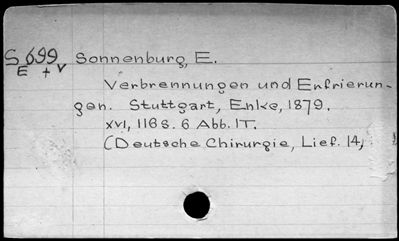 S 699 Sonnenburg, E.
E + V
Verbrennungen und Enfrierun-
gen. Stuttgart, Enke, 1879.
xvi, 116 s. 6 Abb. 1T.
(Deutsche Chirurgie, Lief. 14,